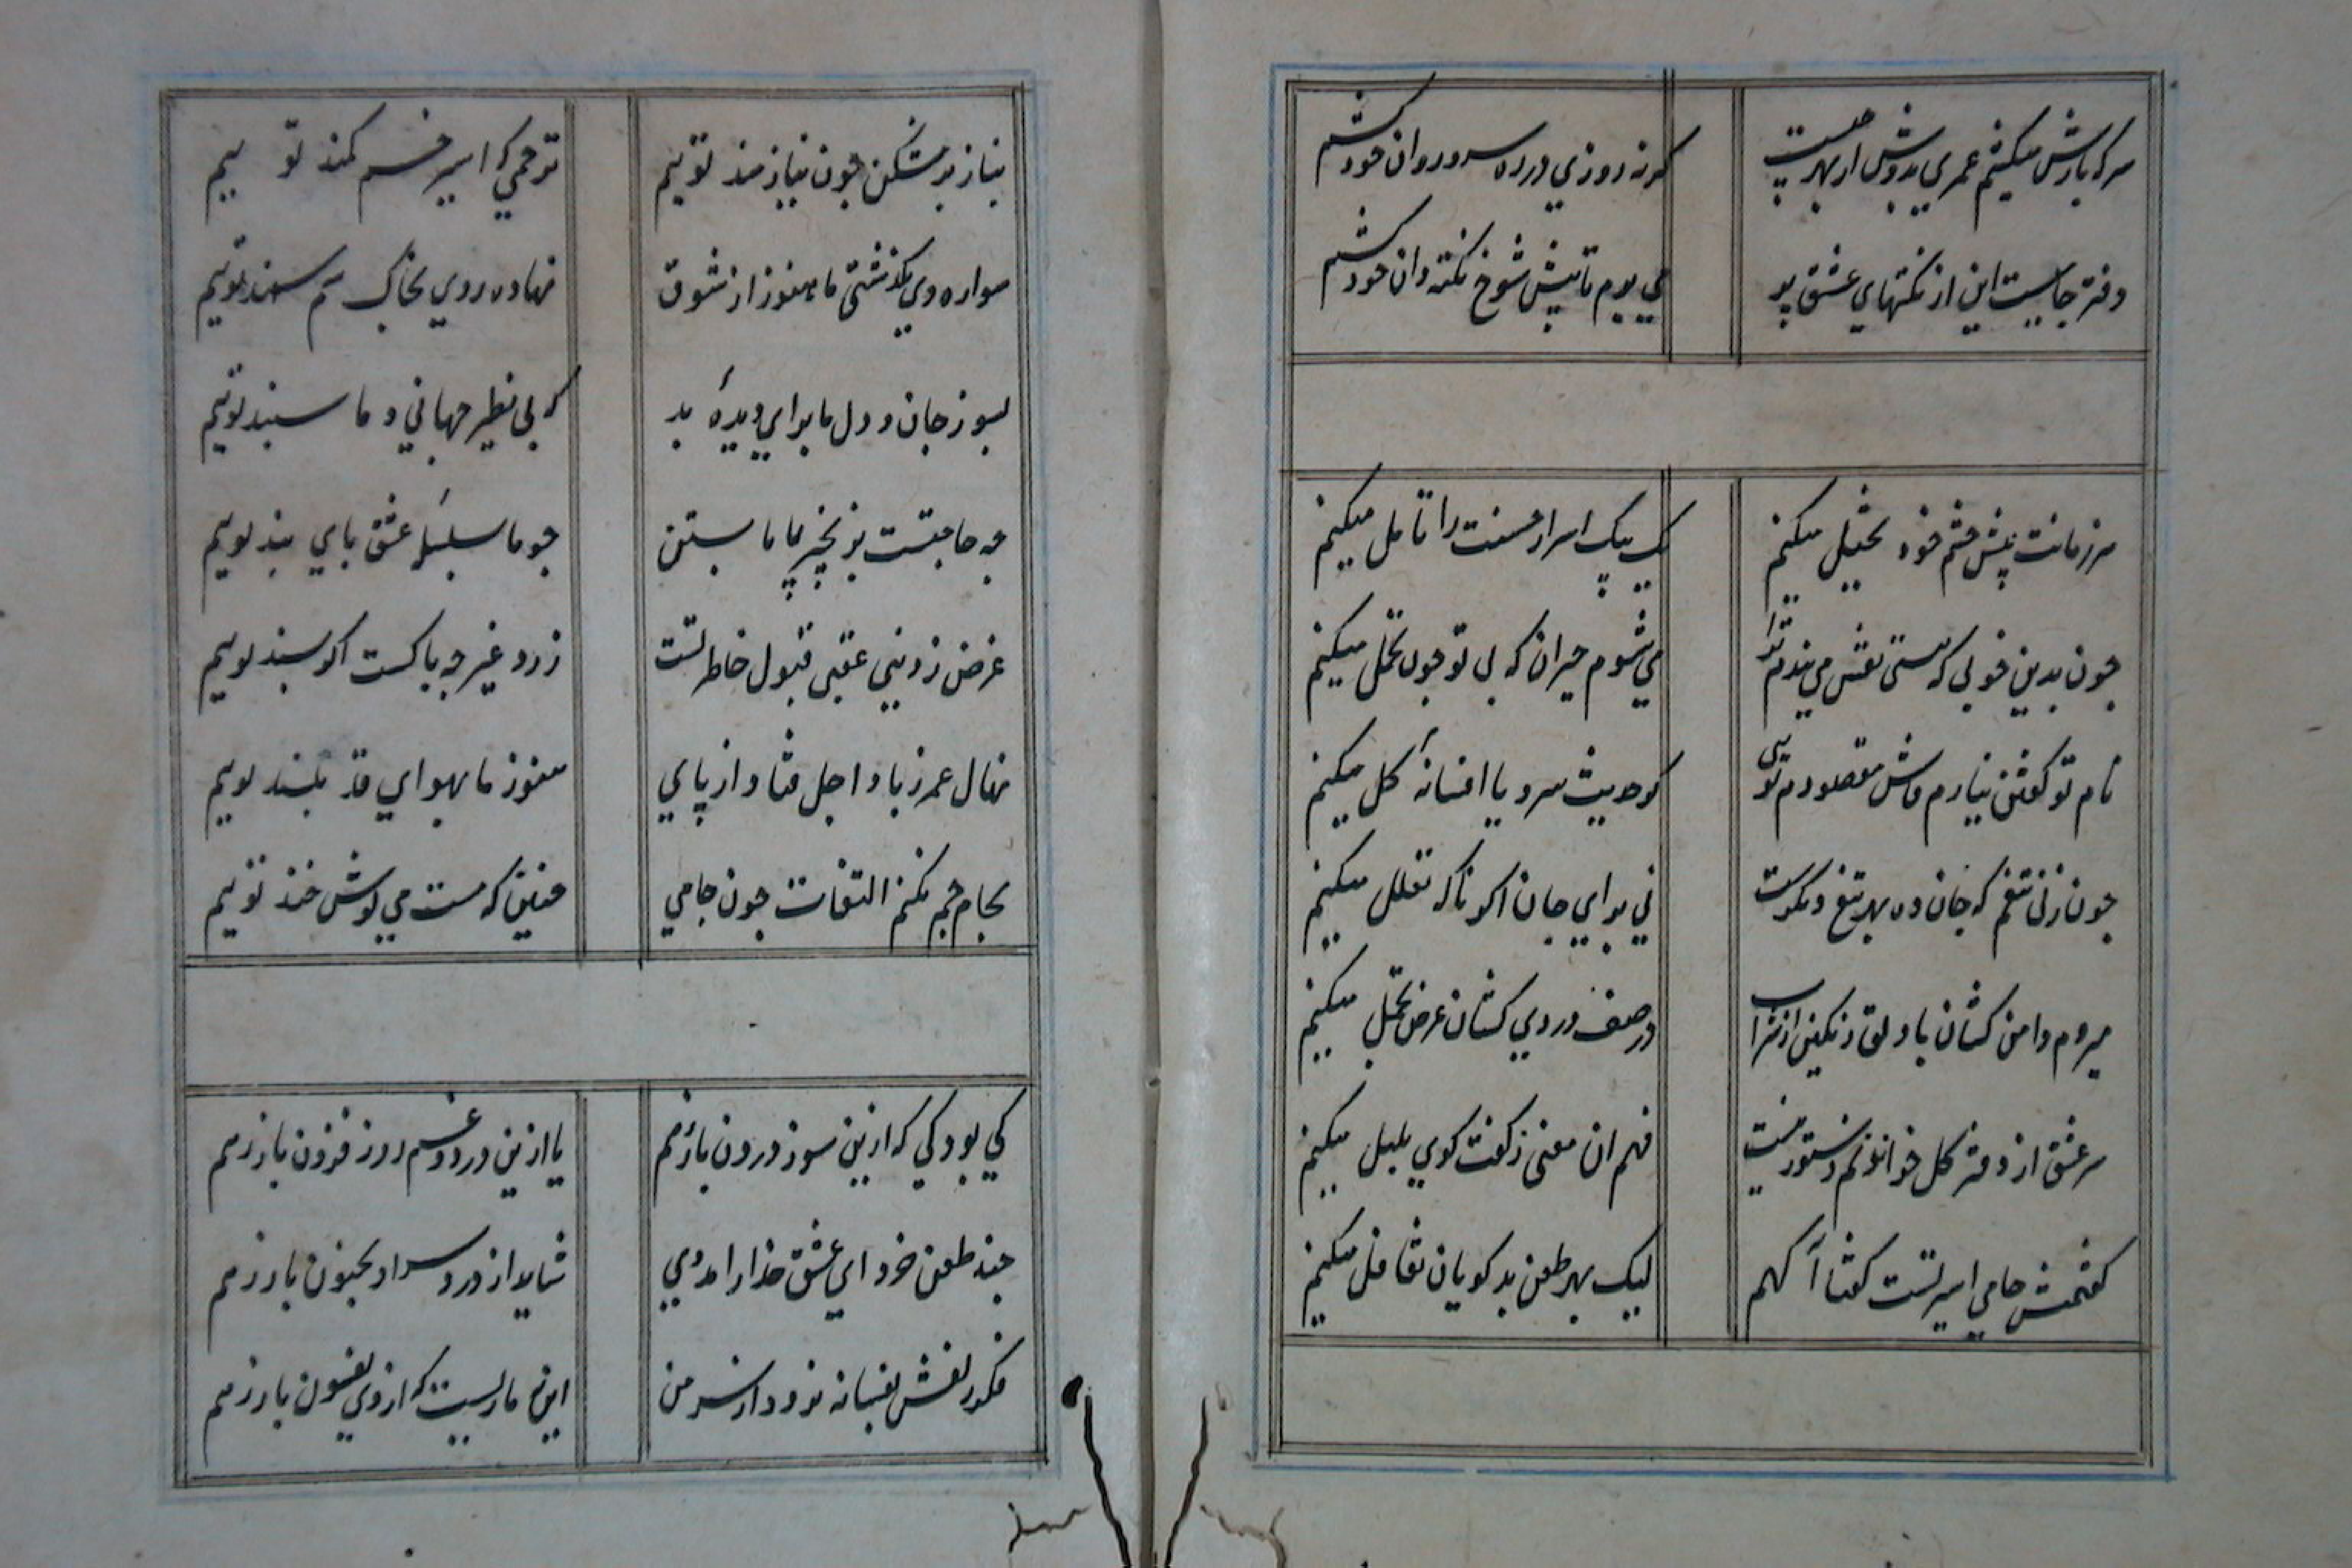 سر که بارش میکشم عمری بدوش از بهر چیست
کر نه روزی در ره سرو روان خود کشم
دفتر جامیست این از نکتهای عشق پر
می برم تا پیش شوخ نکته دان خود کشم
هر زمانت پیش چشم خود تخیل میکنم
یک بیک اسرار حسنت را تامل میکنم
چون بدین خوبی که هستی نقش می بندم ترا
می شوم حیران که بی تو چون تحمل میکنم
نام تو کفتن نیارم فاش مقصودم تویی
کر حدیث سرو یا افسانهٔ کل میکنم
چون زنی تیغم که جان ده بهر تیغ دیکرست
نی برای جان اکر ناکه تعلل میکنم
میروم دامن کشان با دلق رنکین از شراب
در صف دردی کشان عرض تجمل میکنم
سر عشق از دفتر کل خواندنم دستور نیست
فهم ان معنی ز کفت کوی بلبل میکنم
کفتمش جامی اسیر تست کفتا آکهم
لیک بهر طعن بدکویان تغافل میکنم
بناز بر مشکن چون نیازمند توییم
ترحمی که اسیر خم کمند توییم
سواره دی بکذشتی ما هنوز از شوق
نهاده روی بخاک سم سمند توییم
بسوز جان و دل ما برای دیدهٔ بد
که بی نظیر جهانی و ما سپند توییم
چه حاجتست بزنجیر پای ما بستن
چو ما بسلسلهٔ عشق پای بند توییم
غرض ز دنیی عقبی قبول خاطر تست
ز رد غیر چه باکست اکر پسند توییم
نهال عمر ز باد اجل فتاد از پای
هنوز ما بهوای قد بلند توییم
بجام جم نکنم التفات چون جامی
چنین که مست می لوش خند توییم
کی بود کی که ازین سوز درون باز رهم
یا ازین درد و غم روز فزون باز رهم
چند طعن خرد ای عشق خدا را مددی
شاید از درد سر او بجنون باز رهم
فکر زلفش بفسانه نرود از سر من
این نه ماریست که از وی بفسون باز رهم